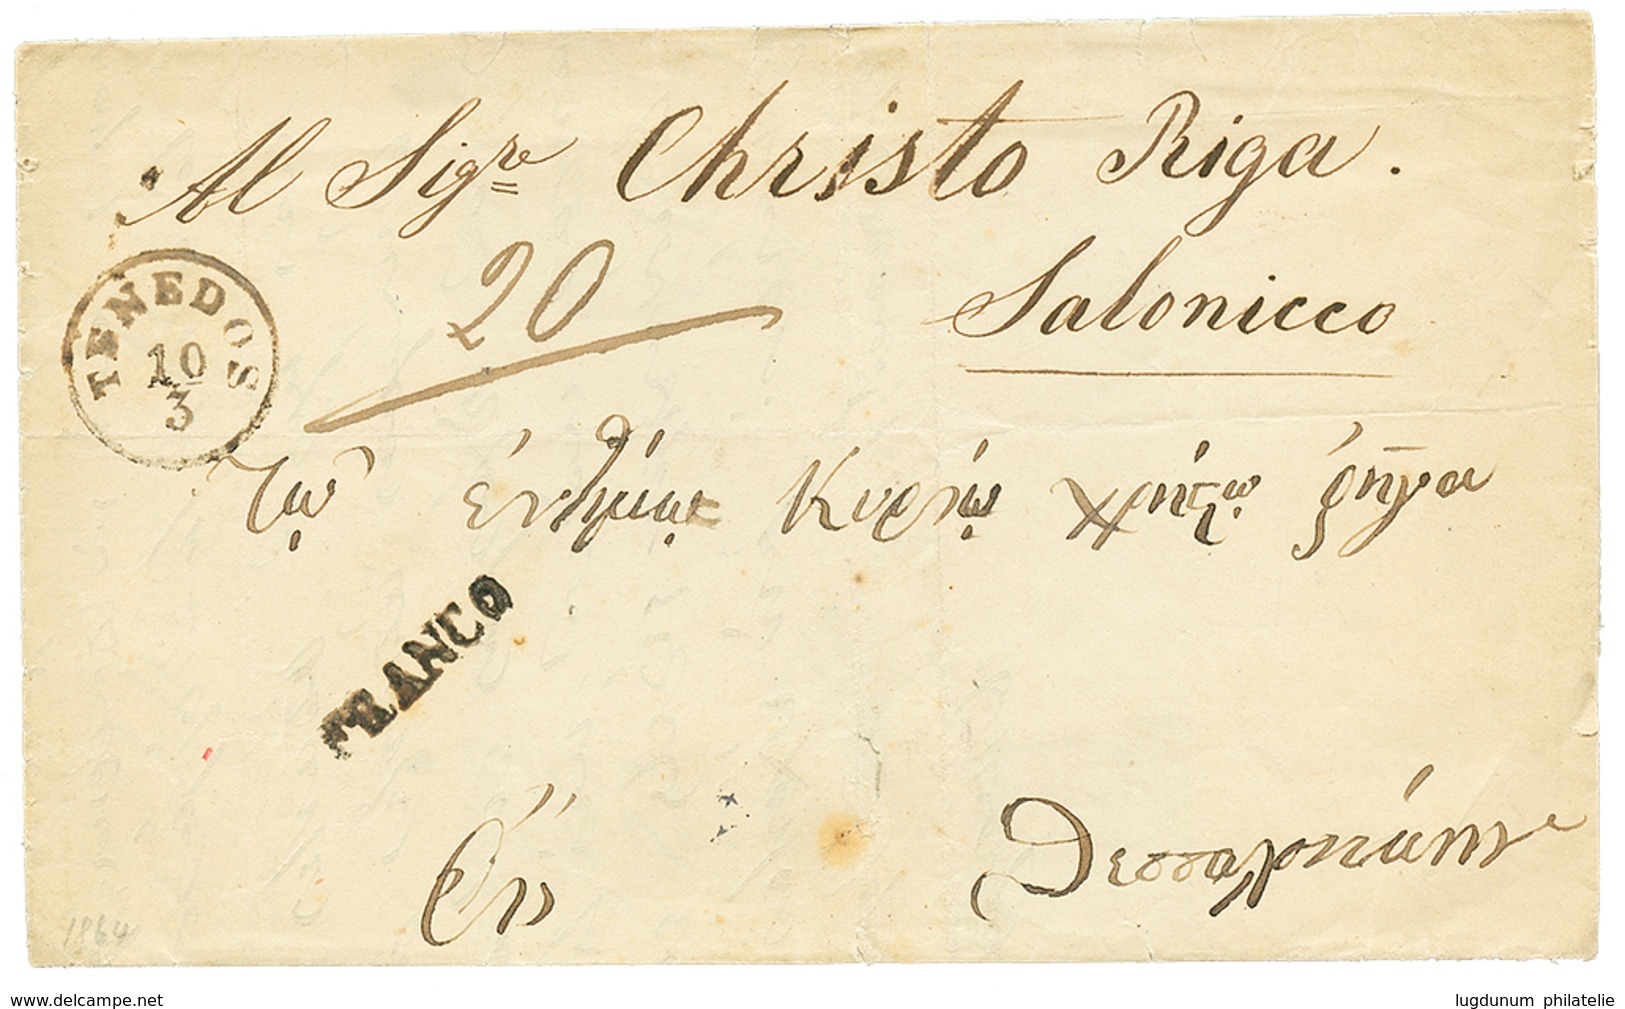 Al Sigre Christo Riga.
20
Salonicco
TENEDOS
10
3
Τῷ ἐντίμῳ Κυρίῳ Χρήστῳ ῥήγα
FRANCO
Εἰς
Θεσσαλονίκην
1864
delcampe.net
lugdunum philatelie